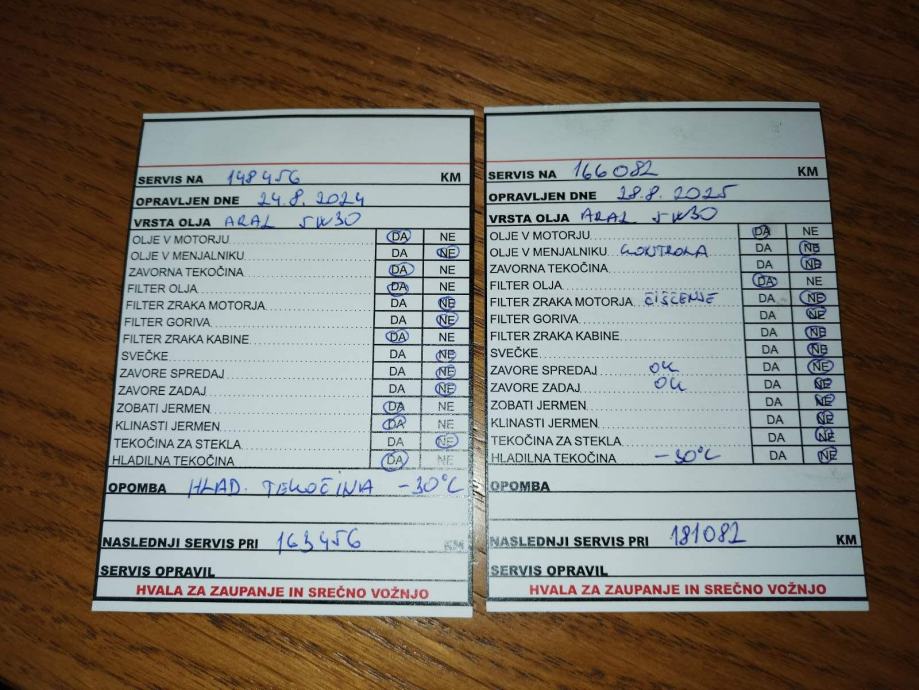 SERVIS NA 148456 KM
OPRAVLJEN DNE 24.8.2024
VRSTA OLJA ARAL 5W30
OLJE V MOTORJU DA NE
OLJE V MENJALNIKU DA NE
ZAVORNA TEKOČINA DA NE
FILTER OLJA DA NE
FILTER ZRAKA MOTORJA DA NE
FILTER GORIVA DA NE
FILTER ZRAKA KABINE DA NE
SVEČKE DA NE
ZAVORE SPREDAJ DA NE
ZAVORE ZADAJ DA NE
ZOBATI JERMEN DA NE
KLINASTI JERMEN DA NE
TEKOČINA ZA STEKLA DA NE
HLADILNA TEKOČINA DA NE
OPOMBA HLAD. TEKOČINA -30°C
NASLEDNJI SERVIS PRI 163456 KM
SERVIS OPRAVIL
HVALA ZA ZAUPANJE IN SREČNO VOŽNJO
SERVIS NA 166082 KM
OPRAVLJEN DNE 28.8.2025
VRSTA OLJA ARAL 5W30
OLJE V MOTORJU DA NE
OLJE V MENJALNIKU KONTROLA DA NE
ZAVORNA TEKOČINA DA NE
FILTER OLJA DA NE
FILTER ZRAKA MOTORJA ČIŠČENJE DA NE
FILTER GORIVA DA NE
FILTER ZRAKA KABINE DA NE
SVEČKE DA NE
ZAVORE SPREDAJ OK DA NE
ZAVORE ZADAJ OK DA NE
ZOBATI JERMEN DA NE
KLINASTI JERMEN DA NE
TEKOČINA ZA STEKLA DA NE
HLADILNA TEKOČINA -30°C DA NE
OPOMBA
NASLEDNJI SERVIS PRI 181082 KM
SERVIS OPRAVIL
HVALA ZA ZAUPANJE IN SREČNO VOŽNJO